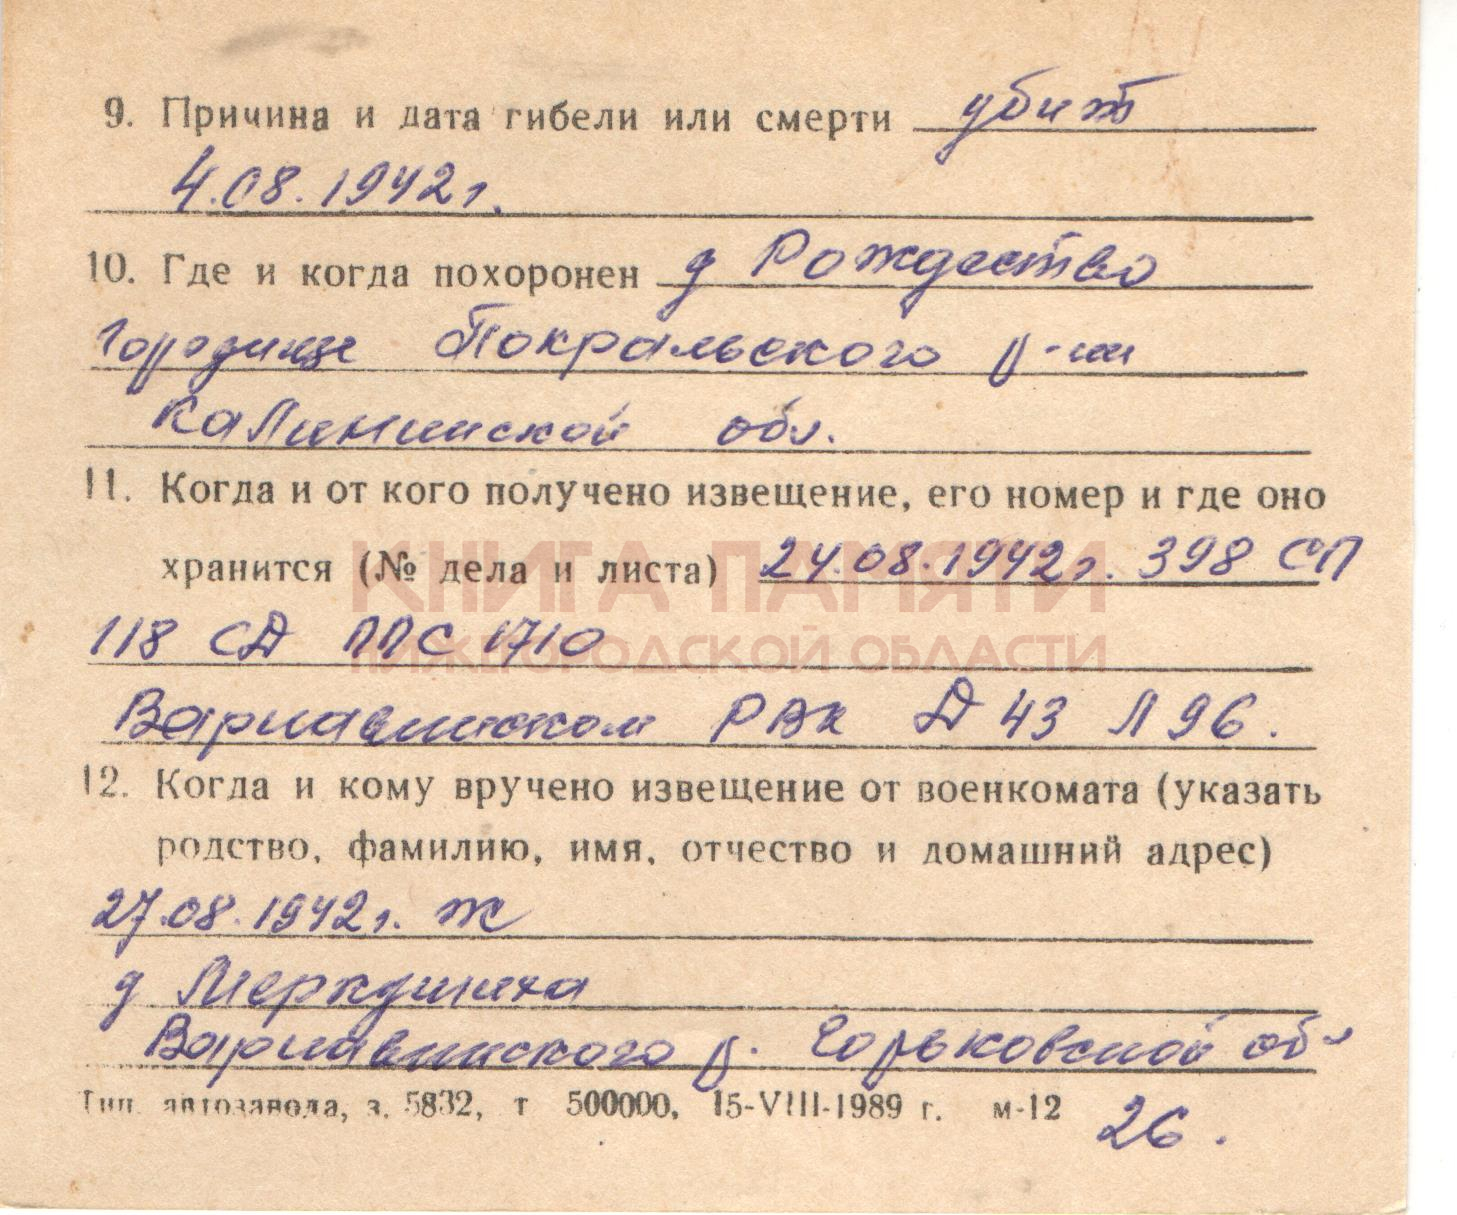 9. Причина и дата гибели или смерти убит
4.08.1942г.
10. Где и когда похоронен д Рождество
Городище Покральского р-на
Калининской обл.
11. Когда и от кого получено извещение, его номер и где оно
хранится (№ дела и листа) 24.08.1942г. 398 СП
118 СД ППС 1710
КНИГА ПАМЯТИ
НИЖЕГОРОДСКОЙ ОБЛАСТИ
Варнавинском РВК Д 43 Л 96.
12. Когда и кому вручено извещение от военкомата (указать
родство, фамилию, имя, отчество и домашний адрес)
27.08.1942г. ж
д Меркушиха
Варнавинского р. Горьковской обл
Тип. автозавода, з. 5832, т 500000, 15-VIII-1989 г. м-12
26.